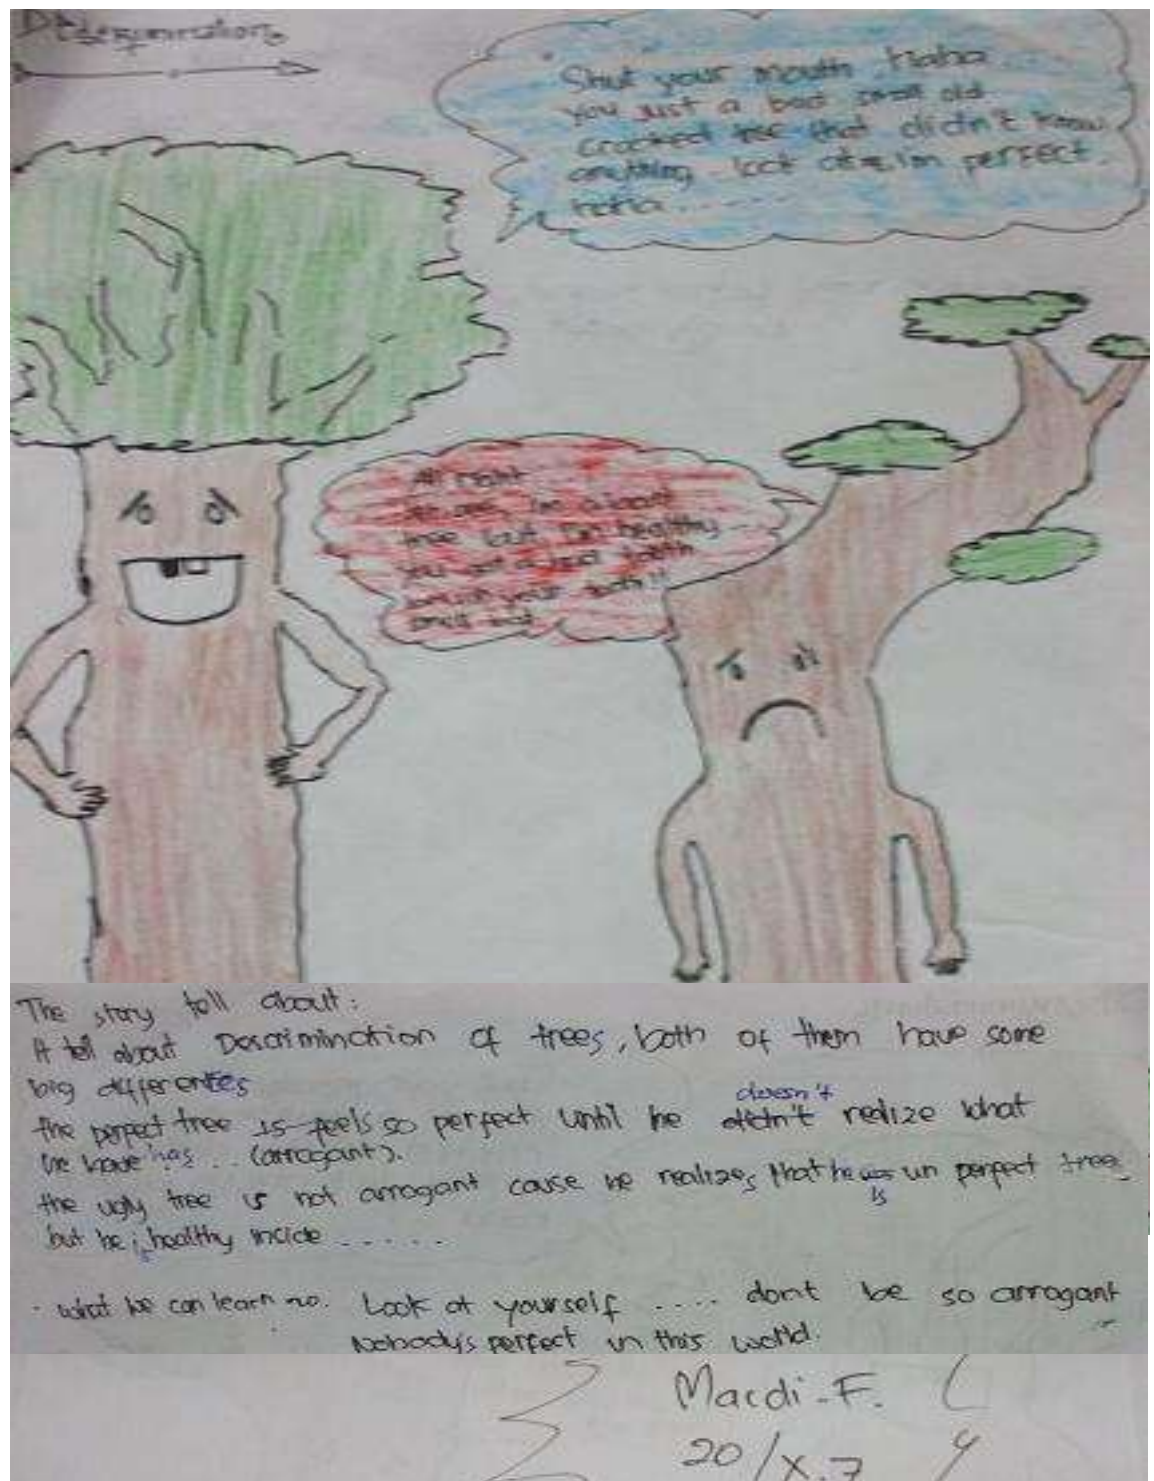 Shut your mouth Haha...
you just a bad small old
crooked tree that didn't know
anything look at me im perfect.
haha......
All right
tree but I'm healthy...
you got a bad tooth
brush your tooth!!!
smell bad.
The story tell about:
It tell about Descrimination of trees, both of them have some
big differentes
doesn't
the perfect tree is feels so perfect until he didn't realize what
he have has... (arrogant).
the ugly tree is not arrogant cause he realizes that he was un perfect tree
is
but he is healthy inside .....
- what we can learn Look at yourself .... dont be so arrogant
Nobody's perfect in this world.
Macdi-F.
20/X.7